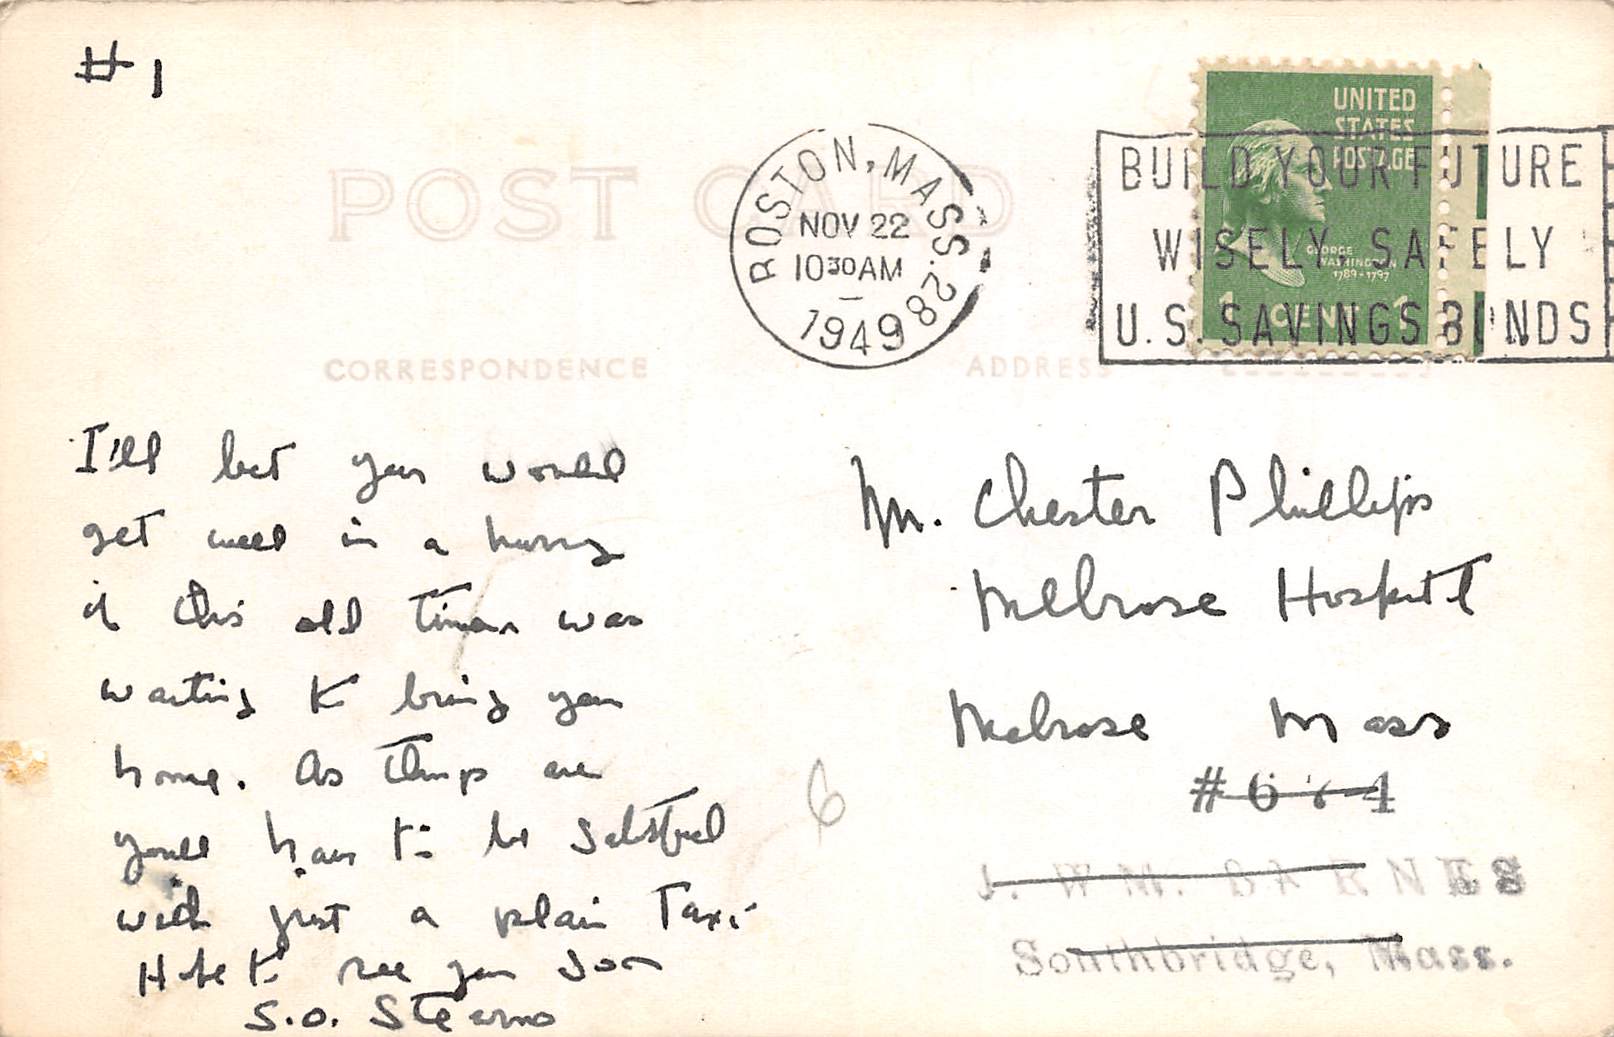 #1
POST CARD
BOSTON, MASS. 28
NOV 22
10 30 AM
1949
UNITED
STATES
POSTAGE
GEORGE
WASHINGTON
1789-1797
1 CENT 1
BUILD YOUR FUTURE
WISELY, SAFELY
U.S. SAVINGS BONDS
CORRESPONDENCE
ADDRESS
I'll bet you would
get well in a hurry
if this old timer was
waiting to bring you
home. As things are
youll have to be satisfied
with just a plain Taxi.
Hope to see you soon
S.O. Stearns
Mr. Chester Phillips
Melrose Hospital
Melrose Mass
#674
J. WM. BARNES
Southbridge, Mass.
6